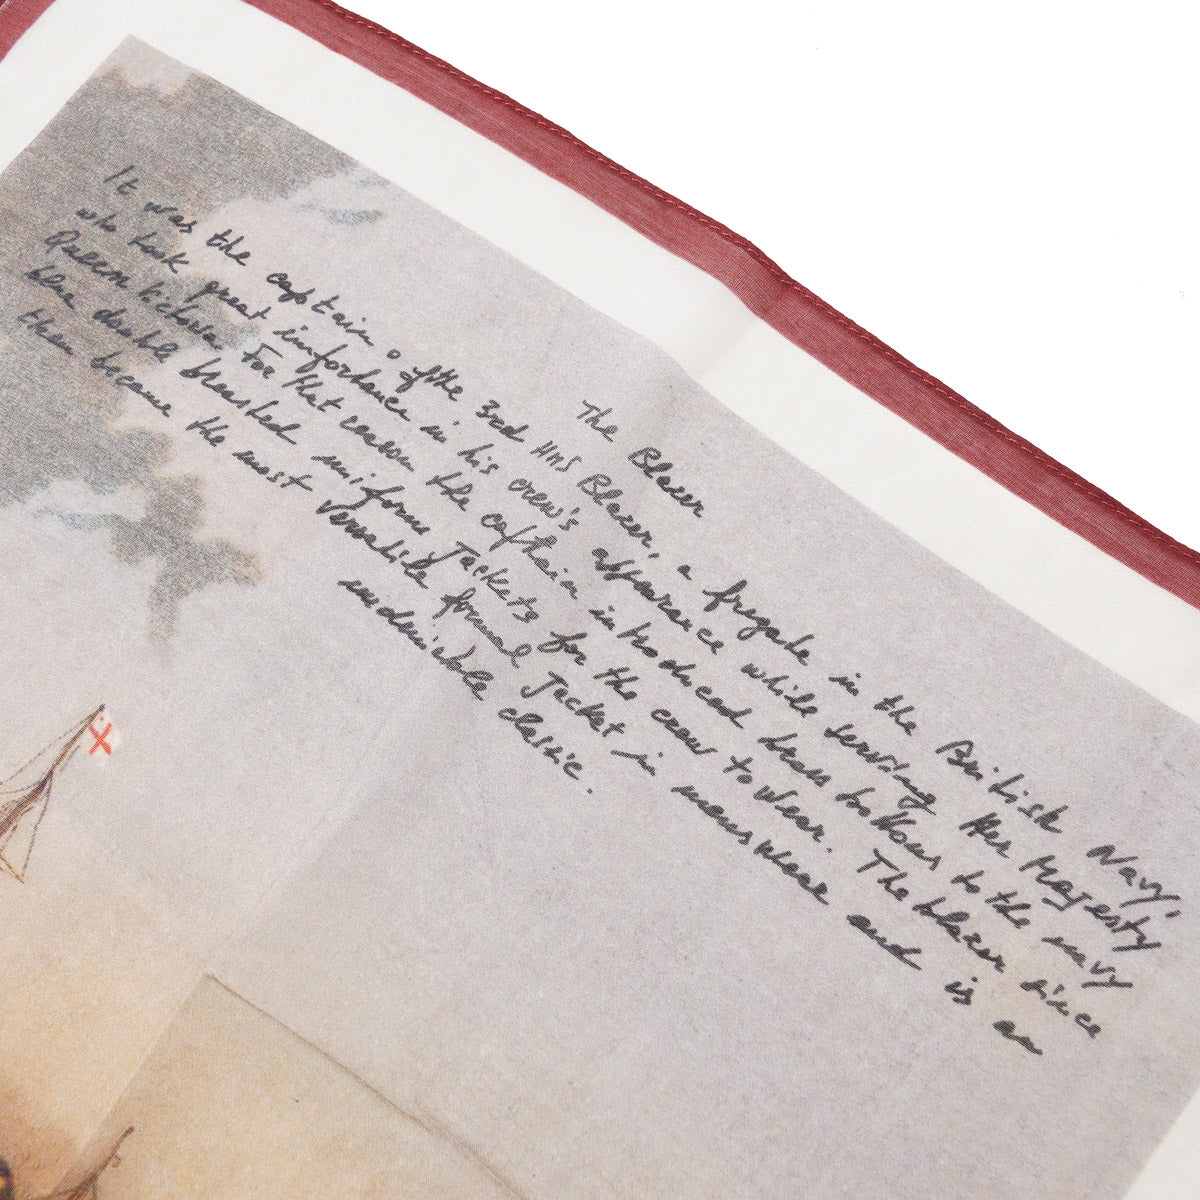 The Blazer
It was the captain of the 3rd HMS Blazer, a fregate in the British Navy,
who took great importance in his crew's appearance while serving Her Majesty
Queen Victoria. For that reason the captain introduced brass buttons to the navy
blue double breasted uniform jackets for the crew to wear. The blazer since
then became the most versatile formal jacket in menswear and is an
undeniable classic.